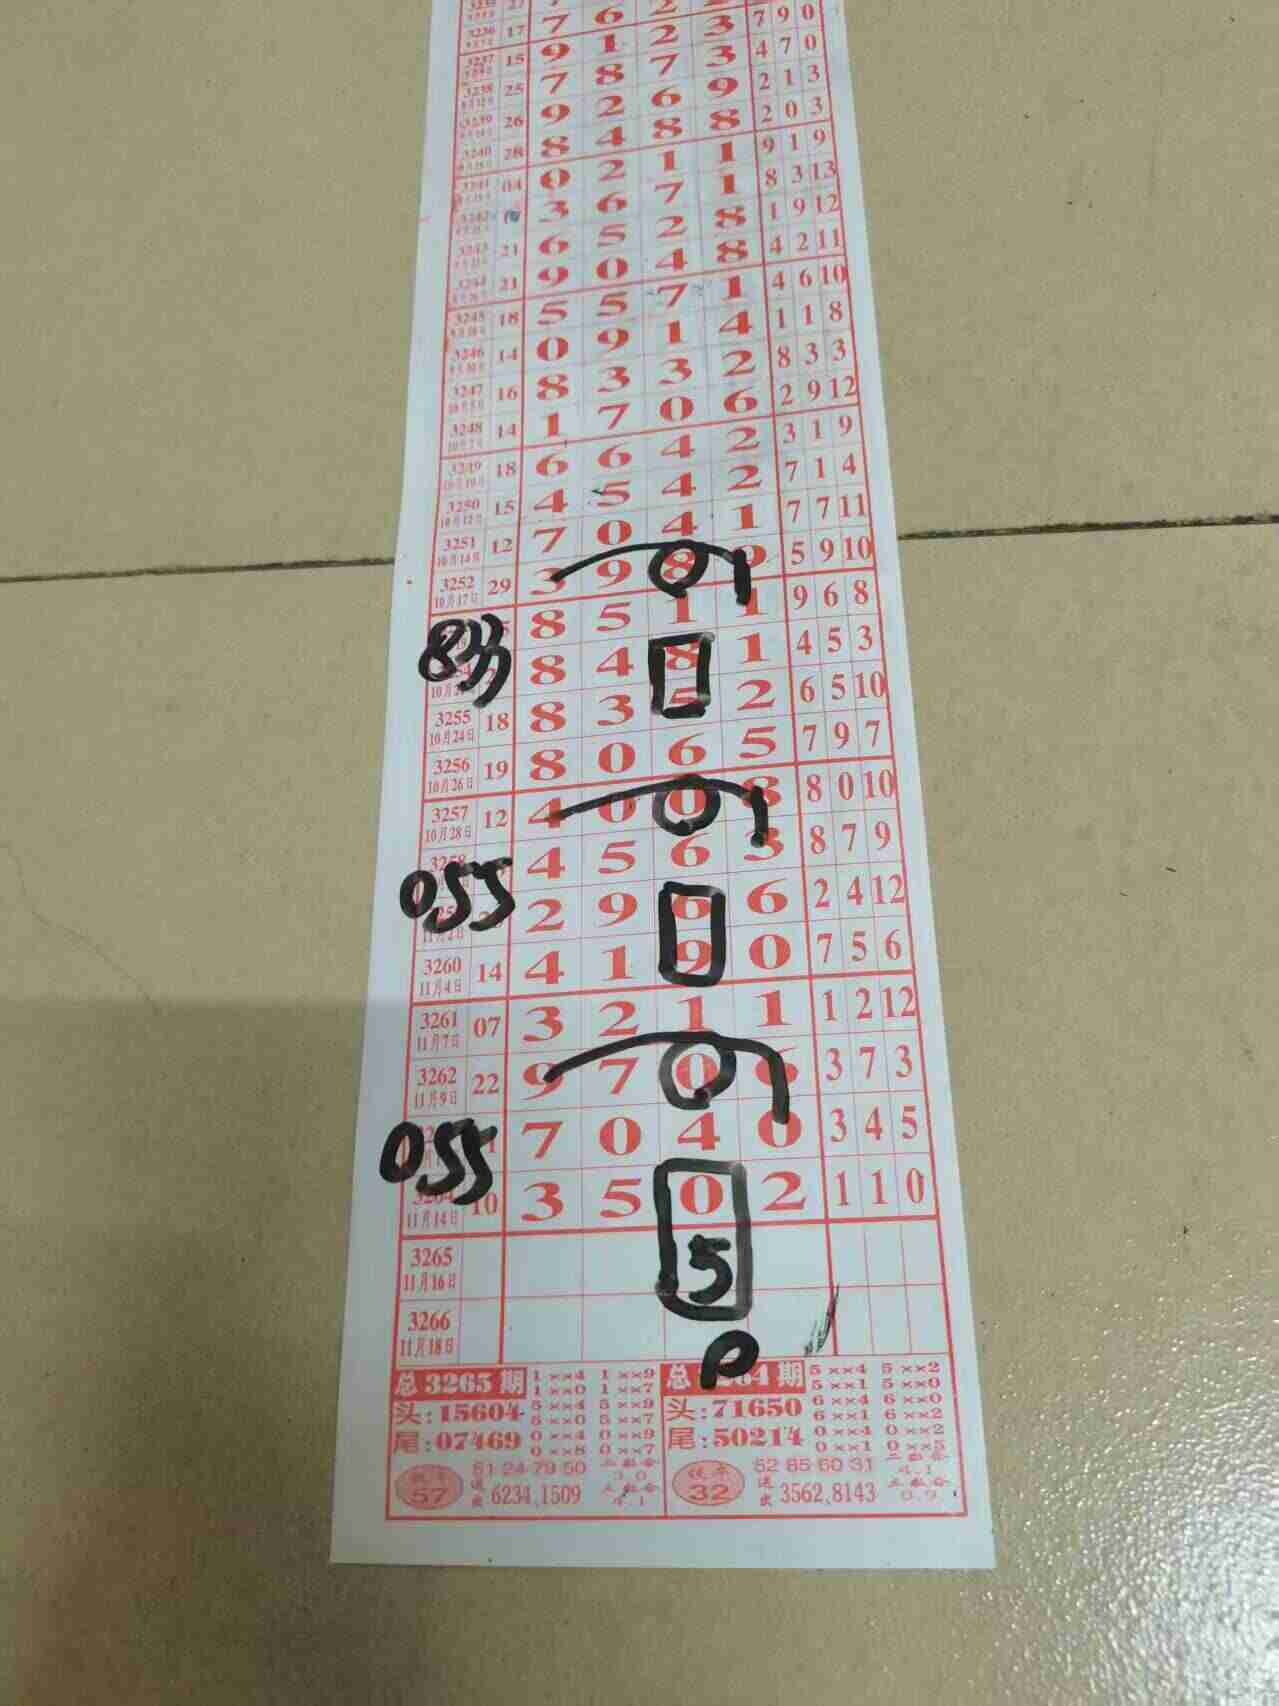 7 6 2 2
3236 17 9 1 2 3 7 9 0
3237 15 7 8 7 3 4 7 0
3238 25 9 2 6 9 2 1 3
3239 26 8 4 8 8 2 0 3
3240 28 0 2 1 1 9 1 9
04 3 6 7 1 8 3 13
6 5 2 8 1 9 12
21 9 0 4 8 4 2 11
21 5 5 7 1 4 6 10
3245 18 0 9 1 4 1 1 8
3246 14 8 3 3 2 8 3 3
3247 16 1 7 0 6 2 9 12
3248 14 6 6 4 2 3 1 9
3249 18 4 5 4 2 7 1 4
3250 10月12日 15 7 0 4 1 7 7 11
3251 10月14日 12 3 9 8 9 5 9 10
3252 10月17日 29 8 5 1 1 9 6 8
833 8 4 8 1 4 5 3
8 3 5 2 6 5 10
3255 10月24日 18 8 0 6 5 7 9 7
3256 10月26日 19 4 0 0 8 8 0 10
3257 10月28日 12 4 5 6 3 8 7 9
055 2 9 6 6 2 4 12
11月2日 4 1 9 0 7 5 6
3260 11月4日 14 3 2 1 1 1 2 12
3261 11月7日 07 9 7 0 6 3 7 3
3262 11月9日 22 7 0 4 0 3 4 5
055 3 5 0 2 1 1 0
11月14日 10
3265 11月16日 5
3266 11月18日
P
总 3265 期 1××4 1××9 总 期 5××4 5××2
1××0 1××7 5××1 5××0
头:15604 5××4 5××9 头:71650 6××4 6××0
5××0 5××7 6××1 6××2
尾:07469 0××4 0××9 尾:50214 0××4 0××2
0××8 0××7 0××1 0××5
57 61 24 79 50 32 52 85 60 31
6234,1509 3562,8143